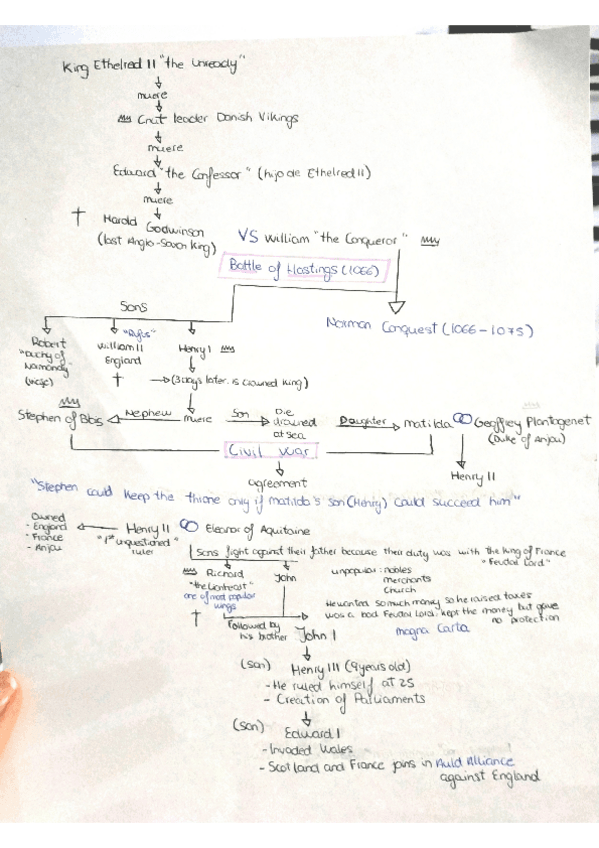 King Ethelred II "the Unready"
muere
Cnut leader Danish Vikings
muere
Edward "the Confessor" (hijo de Ethelred II)
muere
Harold Godwinson
(last Anglo-Saxon King)
VS William "the Conqueror"
Battle of Hastings (1066)
Norman Conquest (1066-1075)
Sons
Robert
"Duchy of
Normandy"
William II
England
Henry I
(3 days later is crowned King)
Stephen of Blois
Nephew
muere
Son
drowned
at sea
Daughter
Matilda
Geoffrey Plantagenet
(Duke of Anjou)
Civil War
Henry II
agreement
"Stephen could keep the throne only if Matilda's son (Henry) could succeed him"
Owned
- England
- France
- Anjou
Henry II
"1st unquestioned"
ruler
Eleanor of Aquitaine
Sons fight against their father because their duty was with the King of France
"Feudal Lord"
Richard
"the Lionheart"
one of most popular
kings
John
unpopular: nobles
merchants
church
He wanted so much money so he raised taxes
was a bad Feudal Lord: kept the money but gave
no protection
Followed by
his brother
John I
magna Carta
(son)
Henry III (9 years old)
- He ruled himself at 25
- Creation of Parliaments
(son)
Edward I
- Invaded Wales
- Scotland and France joins in Auld Alliance
against England